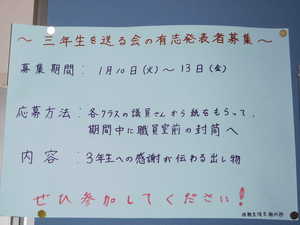 ～ 三年生を送る会の有志発表者募集 ～
募集期間: 1月10日(火)～13日(金)
応募方法: 各クラスの議員さんから紙をもらって、
期間中に職員室前の封筒へ
内容: 3年生への感謝が伝わる出し物
ぜひ参加してください!